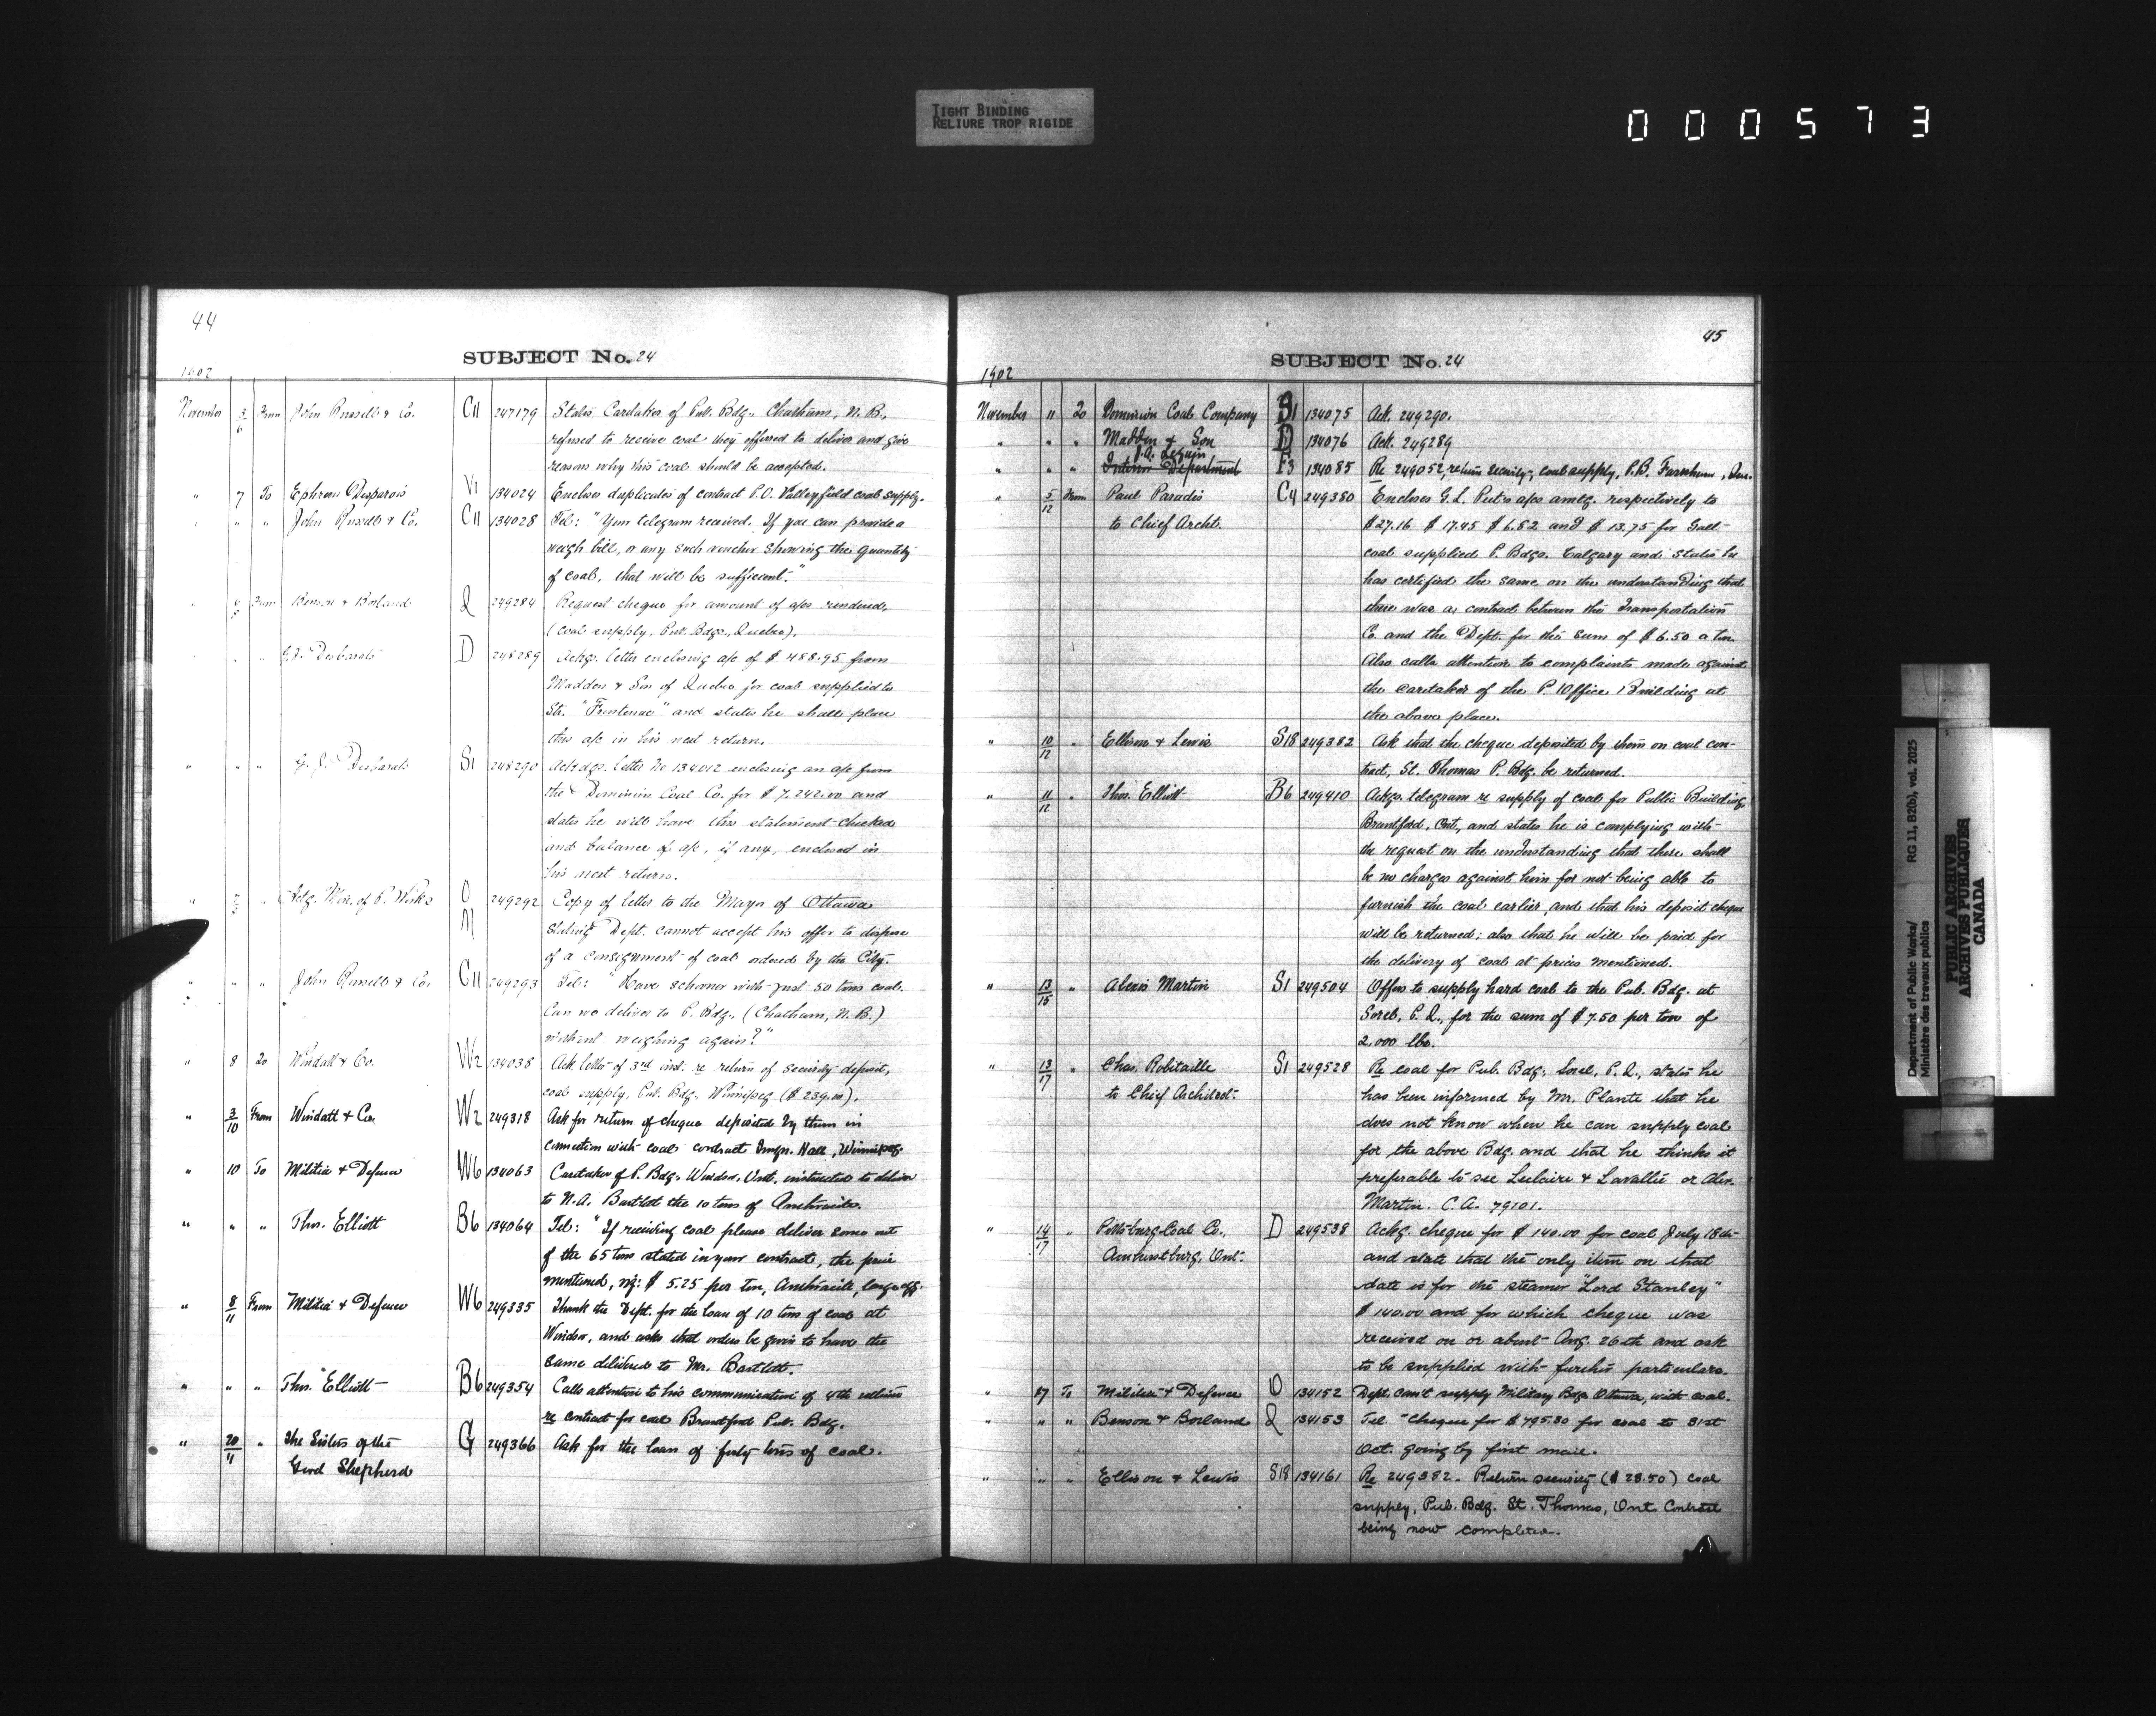 TIGHT BINDING
RELIURE TROP RIGIDE
000573
44
SUBJECT No. 24
1902
November 5/6 From John Russell & Co. C11 247179 States Caretaker of Pub. Bdg. Chatham, N.B.
refused to receive coal they offered to deliver and give
reasons why this coal should be accepted.
" 7 To Ephrem Desparois V1 134024 Encloses duplicates of contract P.O. Valleyfield coal supply.
" " " John Russell & Co. C11 134028 Tel: "Your telegram received. If you can provide a
weigh bill, or any such voucher showing the quantity
of coal, that will be sufficient."
From Benson & Borland Q 249284 Request cheque for amount of a/cs rendered,
(coal supply, Pub. Bdgs., Quebec).
" " G.J. Desbarats D 248289 Ackgs. letter enclosing a/c of $488.95 from
Madden & Son of Quebec for coal supplied to
Str. "Frontenac" and states he shall place
this a/c in his next return.
" " " G.J. Desbarats S1 248290 Ackdgs. letter No 134012 enclosing an a/c from
the Dominion Coal Co. for $7.242.00 and
states he will have this statement checked
and balance of a/c, if any, enclosed in
his next return.
" " Actg. Min. of P. Works O 249292 Copy of letter to the Mayor of Ottawa
M stating Dept. cannot accept his offer to dispose
of a consignment of coal ordered by the City.
" " " John Russell & Co. C11 249293 Tel: "Have schooner with just 50 tons coal.
Can we deliver to P. Bdg. (Chatham, N.B.)
without weighing again?"
" 8 To Windatt & Co. W2 134038 Ack. letter of 3rd inst. re return of security deposit,
coal supply, Pub. Bdg. Winnipeg ($239.00).
" 3/10 From Windatt & Co. W2 249318 Ask for return of cheque deposited by them in
connection with coal contract Immgn. Hall, Winnipeg.
" 10 To Militia & Defence W6 134063 Caretaker of P. Bdg. Windsor, Ont. instructed to deliver
to N.A. Bartlet the 10 tons of Anthracite.
" " " Thos. Elliott B6 134064 Tel: "If receiving coal please deliver some out
of the 65 tons stated in your contract, the price
mentioned, viz: $5.25 per ton, Anthracite, large egg.
" 8/11 From Militia & Defence W6 249335 Thank the Dept. for the loan of 10 tons of coal at
Windsor, and asks that orders be given to have the
same delivered to Mr. Bartlett.
" " " Thos. Elliott B6 249354 Calls attention to his communication of 4th ultimo
re contract for coal Brantford Pub. Bdg.
" 20/11 " The Sisters of the G 249366 Ask for the loan of forty tons of coal.
Good Shepherd
45
SUBJECT No. 24
1902
November 11 To Dominion Coal Company S1 134075 Ack. 249290.
" " " Madden & Son D 134076 Ack. 249289
J.A. Lequin
" " " Interior Department F3 134085 Re 249052, return security, coal supply, P.B. Farnham, Que.
" 5/12 From Paul Paradis C4 249380 Encloses G.L. Put's a/cs amtg. respectively to
to Chief Archt. $27.16 $17.45 $6.82 and $13.75 for Galt
coal supplied P. Bdgs. Calgary and states he
has certified the same on the understanding that
there was a contract between the Transportation
Co. and the Dept. for the sum of $6.50 a ton.
Also calls attention to complaints made against
the caretaker of the P. Office Building at
the above place.
" 10/12 " Ellison & Lewis S18 249382 Ask that the cheque deposited by them on coal con-
tract, St. Thomas P. Bdg. be returned.
" 11/12 " Thos. Elliott B6 249410 Ackgs. telegram re supply of coal for Public Building,
Brantford, Ont., and states he is complying with
the request on the understanding that there shall
be no charges against him for not being able to
furnish the coal earlier, and that his deposit cheque
will be returned; also that he will be paid for
the delivery of coal at prices mentioned.
" 13/15 " Alexis Martin S1 249504 Offers to supply hard coal to the Pub. Bdg. at
Sorel, P.Q., for the sum of $7.50 per ton of
2.000 lbs.
" 13/17 " Chas. Robitaille S1 249528 Re coal for Pub. Bdg. Sorel, P.Q., states he
to Chief Architect. has been informed by Mr. Plante that he
does not know when he can supply coal
for the above Bdg. and that he thinks it
preferable to see Leclaire & Lavallée or Alex.
Martin. C.A. 79101.
" 14/17 " Pittsburg Coal Co., D 249538 Ackg. cheque for $140.00 for coal July 18th
Amherstburg, Ont. and state that the only item on that
date is for the steamer "Lord Stanley"
$140.00 and for which cheque was
received on or about Aug. 26th and ask
to be supplied with further particulars.
" 17 To Militia & Defence O 134152 Dept. can't supply Military Bdg. Ottawa, with coal.
" " " Benson & Borland Q 134153 Tel. "Cheque for $795.30 for coal to 31st
Oct. going by first mail.
" " " Ellison & Lewis S18 134161 Re 249382. Return security ($28.50) coal
supply, Pub. Bdg. St. Thomas, Ont. Contract
being now completed.
Department of Public Works/ RG 11, B2(b), vol. 2025
Ministère des travaux publics
PUBLIC ARCHIVES
ARCHIVES PUBLIQUES
CANADA